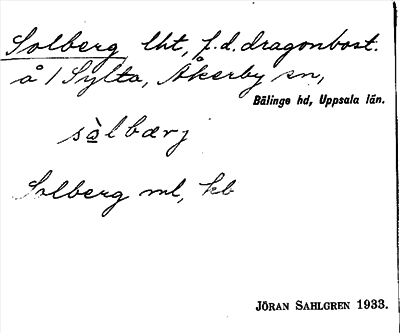 Solberg lht, f.d. dragonbost.
å 1 Sylta, Åkerby sn,
Bälinge hd, Uppsala län.
sàlbærj
Solberg ml, kb
JÖRAN SAHLGREN 1933.